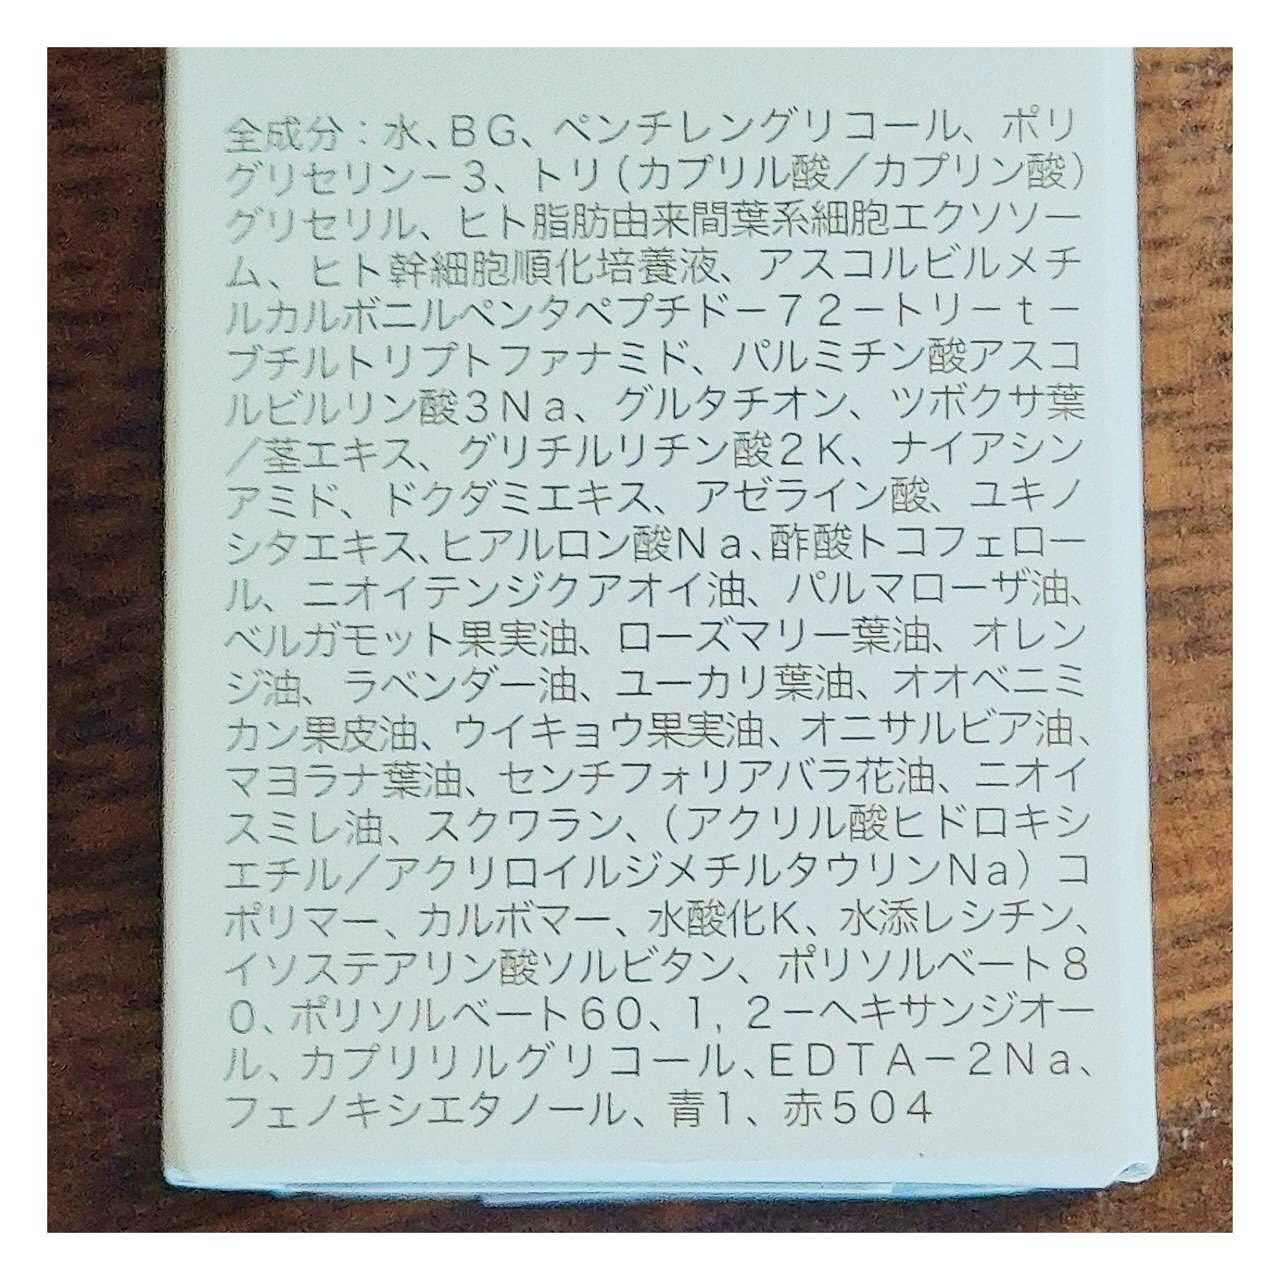 全成分：水、BG、ペンチレングリコール、ポリ
グリセリン－3、トリ（カプリル酸／カプリン酸）
グリセリル、ヒト脂肪由来間葉系細胞エクソソー
ム、ヒト幹細胞順化培養液、アスコルビルメチ
ルカルボニルペンタペプチド－72－トリ－t－
ブチルトリプトファナミド、パルミチン酸アスコ
ルビルリン酸3Na、グルタチオン、ツボクサ葉
／茎エキス、グリチルリチン酸2K、ナイアシン
アミド、ドクダミエキス、アゼライン酸、ユキノ
シタエキス、ヒアルロン酸Na、酢酸トコフェロー
ル、ニオイテンジクアオイ油、パルマローザ油、
ベルガモット果実油、ローズマリー葉油、オレン
ジ油、ラベンダー油、ユーカリ葉油、オオベニミ
カン果皮油、ウイキョウ果実油、オニサルビア油、
マヨラナ葉油、センチフォリアバラ花油、ニオイ
スミレ油、スクワラン、（アクリル酸ヒドロキシ
エチル／アクリロイルジメチルタウリンNa）コ
ポリマー、カルボマー、水酸化K、水添レシチン、
イソステアリン酸ソルビタン、ポリソルベート8
0、ポリソルベート60、1，2－ヘキサンジオー
ル、カプリリルグリコール、EDTA－2Na、
フェノキシエタノール、青1、赤504